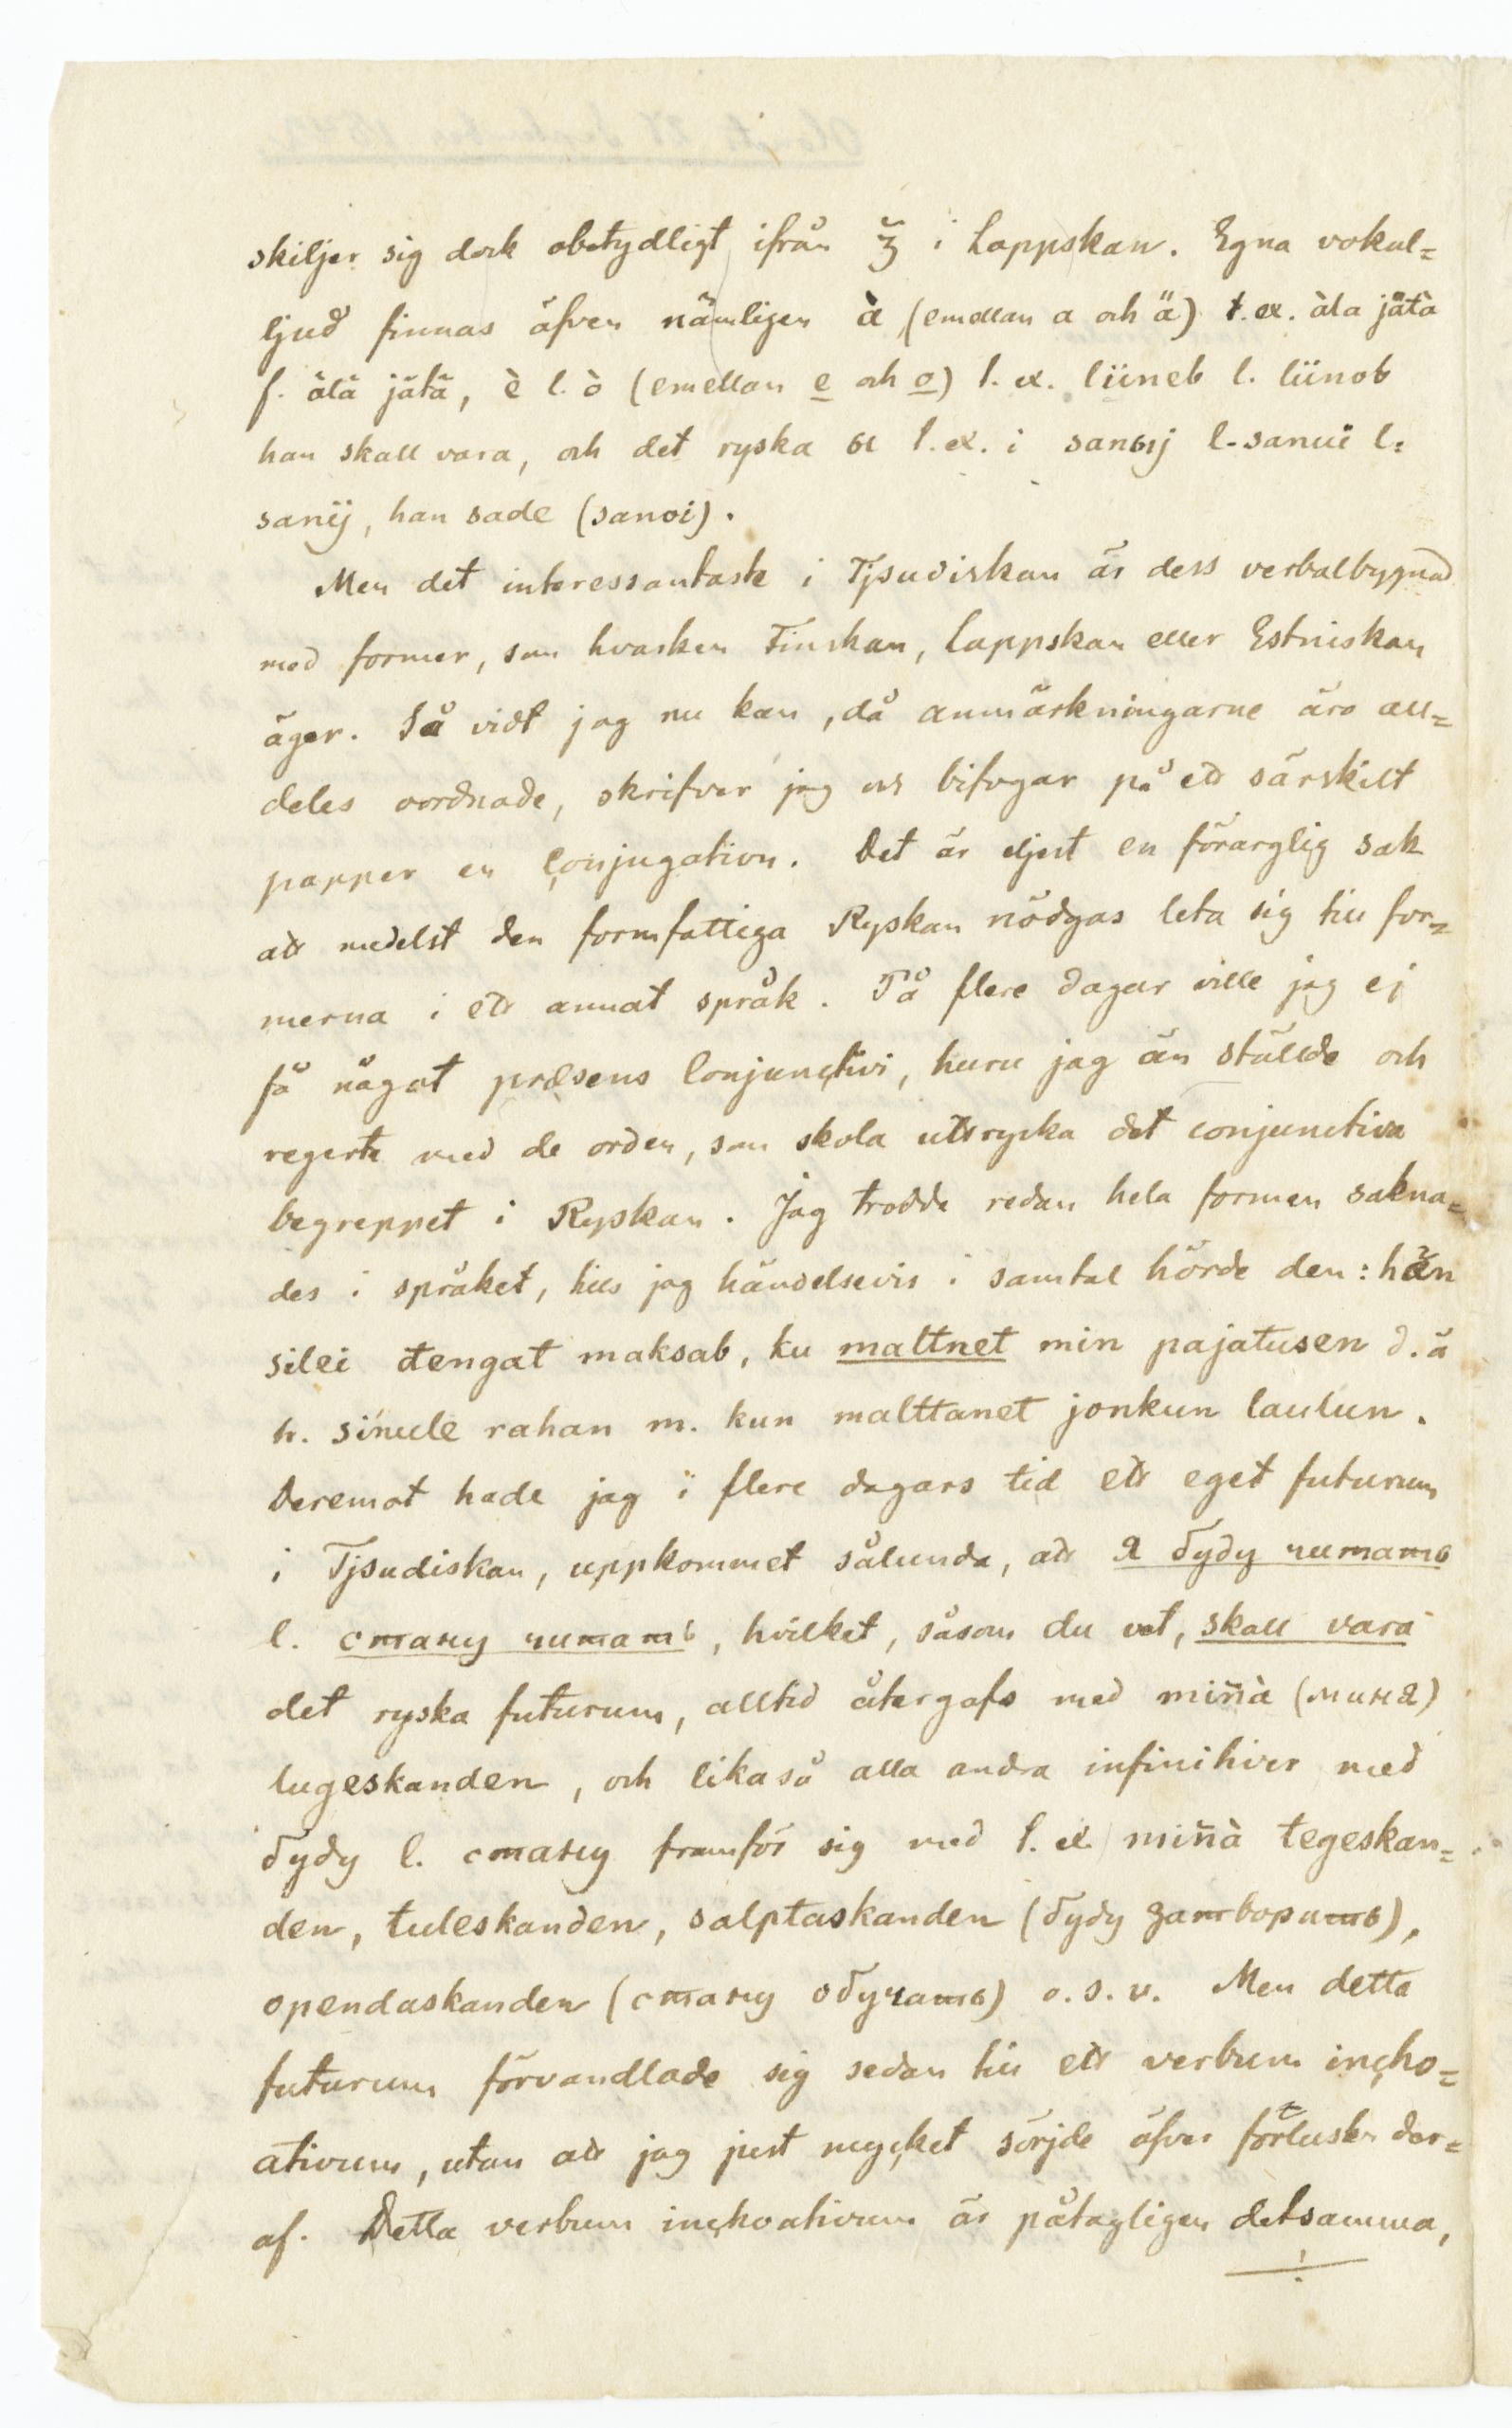 skiljer sig dock obetydligt ifrån ǯ i Lappskan. Egna vokal=
ljud finnas äfven nämligen à (emellan a och ä) t.ex. àla jätà
f. älä jätä, è l. ò (emellan e och o) t. ex. liineb l. liinob
han skall vara, och det ryska ы t.ex. i sanыj l. sanui l:
sanÿ, han sade (sanoi).
Men det interessantaste i Tjsudiskan är dess verbalbygnad
med former, som hvarken Finskan, Lappskan eller Estniskan
äger. Så vidt jag nu kan, då anmärkningarne äro all=
deles oordnade, skrifver jag och bifogar på ett särskilt
papper en Conjugation. Det är eljest en förarglig sak
att medelst den formfattiga Ryskan nödgas leta sig till for=
merna i ett annat språk. På flere dagar ville jag ej
få något præsens Conjunctivi, huru jag än ställde och
regerte med de orden, som skola uttrycka det conjunctiva
begreppet i Ryskan. Jag trodde redan hela formen sakna=
des i språket, tills jag händelsevis i samtal hörde den: hän
silei tengat maksab, ku maltnet min pajatusen d.ä
h. sinule rahan m. kun malttanet jonkun laulun.
Deremot hade jag i flere dagars tid ett eget futurum
i Tjsudiskan, uppkommet sålunda, att я буду читать
l. стану читать, hvilket, såsom du vet, skall vara
det ryska futurum, alltid återgafs med minà (миня)
lugeskanden, och likaså alla andra infinitiver med
буду l. стану framför sig med t. ex. minà tegeskan=
den, tuleskanden, salptaskanden (буду затворить),
opendaskanden (стану обучать) o.s.v. Men detta
futurum förvandlade sig sedan till ett verbum incho=
ativum, utan att jag just mycket sörjde öfver förlusten der=
af. Detta verbum inchoativum är påtagligen detsamma,